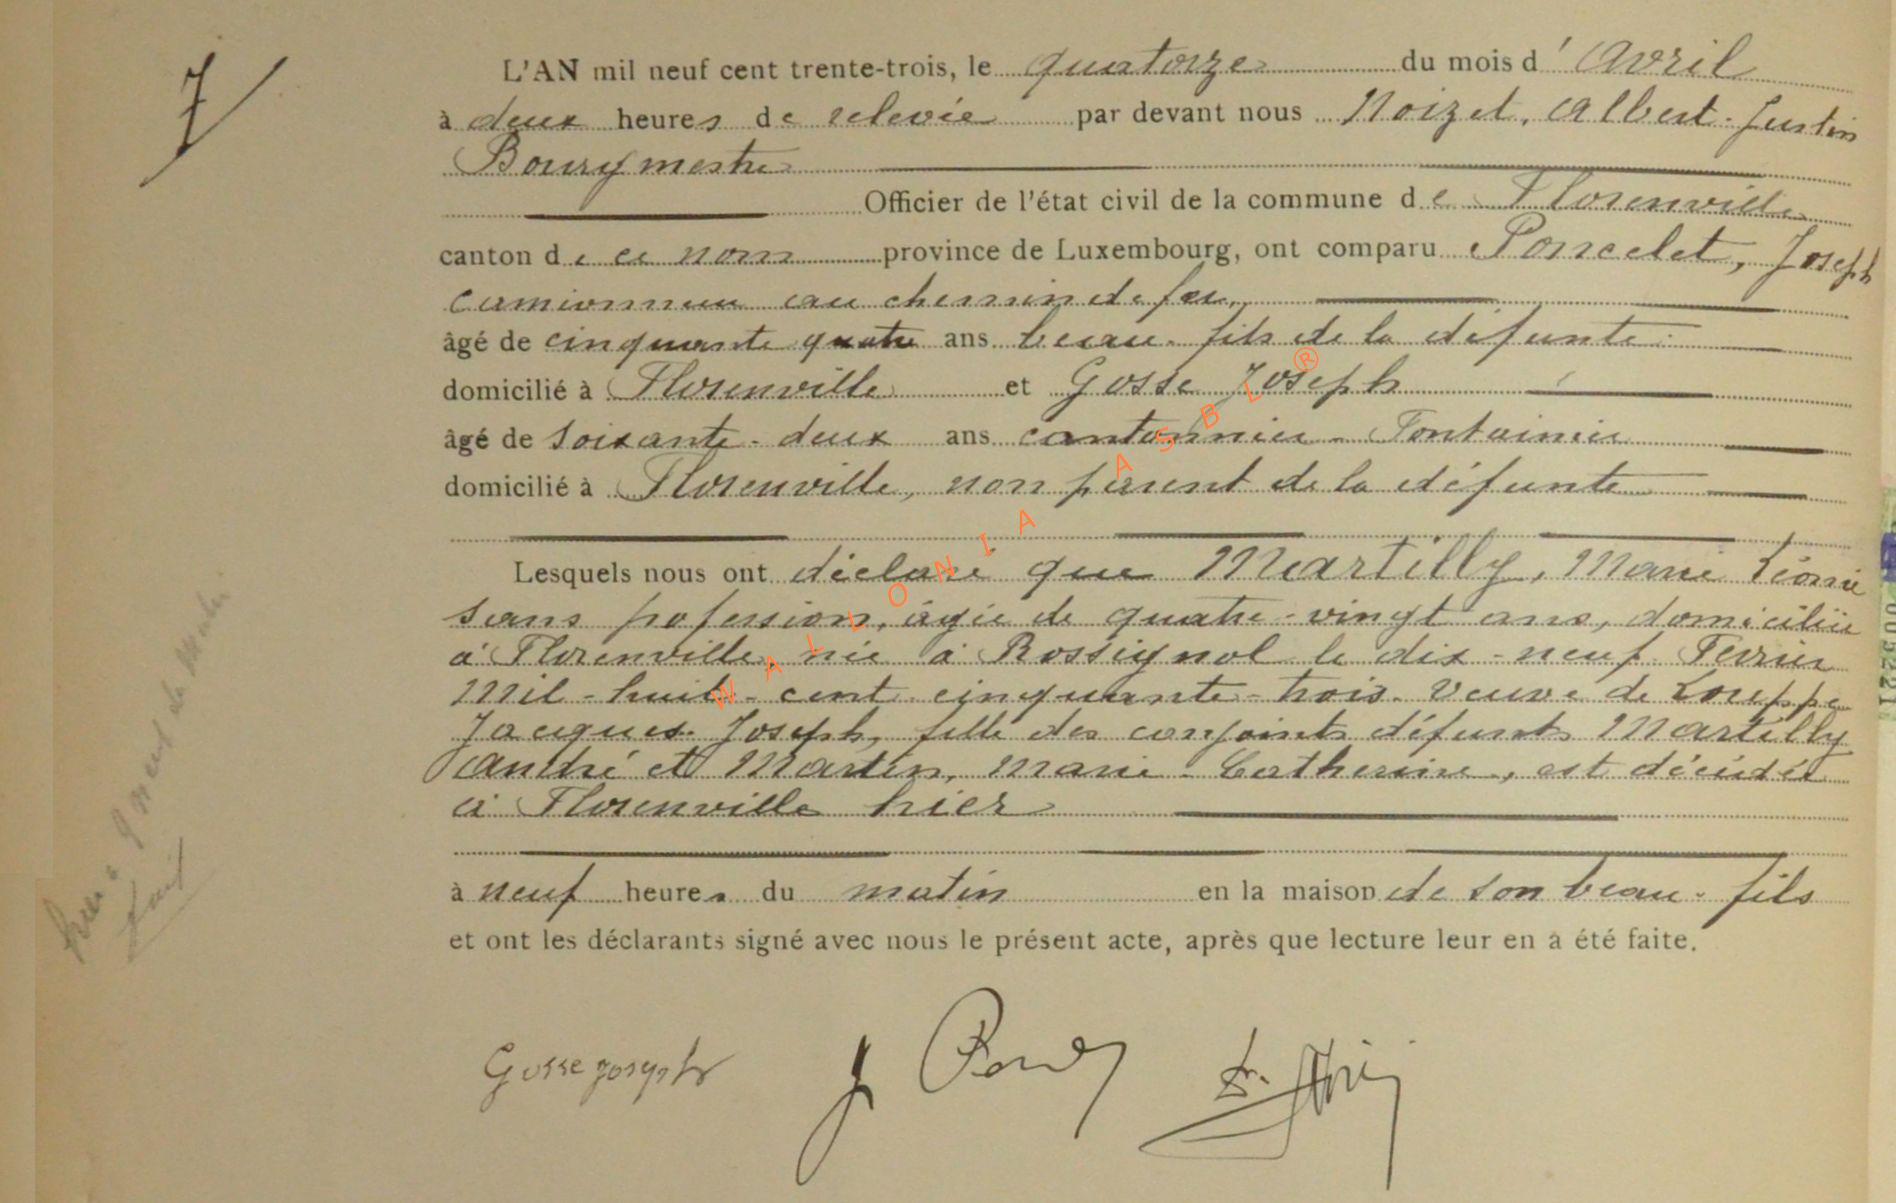 7
L'AN mil neuf cent trente-trois, le quatorze du mois d' Avril
à deux heures de relevée par devant nous Noizet, Albert-Justin
Bourgmestre
Officier de l'état civil de la commune de Florenville
canton de ce nom province de Luxembourg, ont comparu Poncelet, Joseph
camionneur au chemin de fer,
âgé de cinquante quatre ans beau-fils de la défunte
domicilié à Florenville et Gosse Joseph
âgé de soixante-deux ans cantonnier-Fontainier
domicilié à Florenville, non parent de la défunte
Lesquels nous ont déclaré que Martilly, Marie Léonie
sans profession, âgée de quatre-vingt ans, domiciliée
à Florenville, née à Rossignol le dix-neuf Février
Mil-huit-cent cinquante-trois. Veuve de Louppe
Jacques-Joseph, fille des conjoints défunts Martilly
André et Martin, Marie-Catherine, est décédée
à Florenville hier
à neuf heures du matin en la maison de son beau-fils
et ont les déclarants signé avec nous le présent acte, après que lecture leur en a été faite.
Gosse Joseph
WALLONIA ASBL®